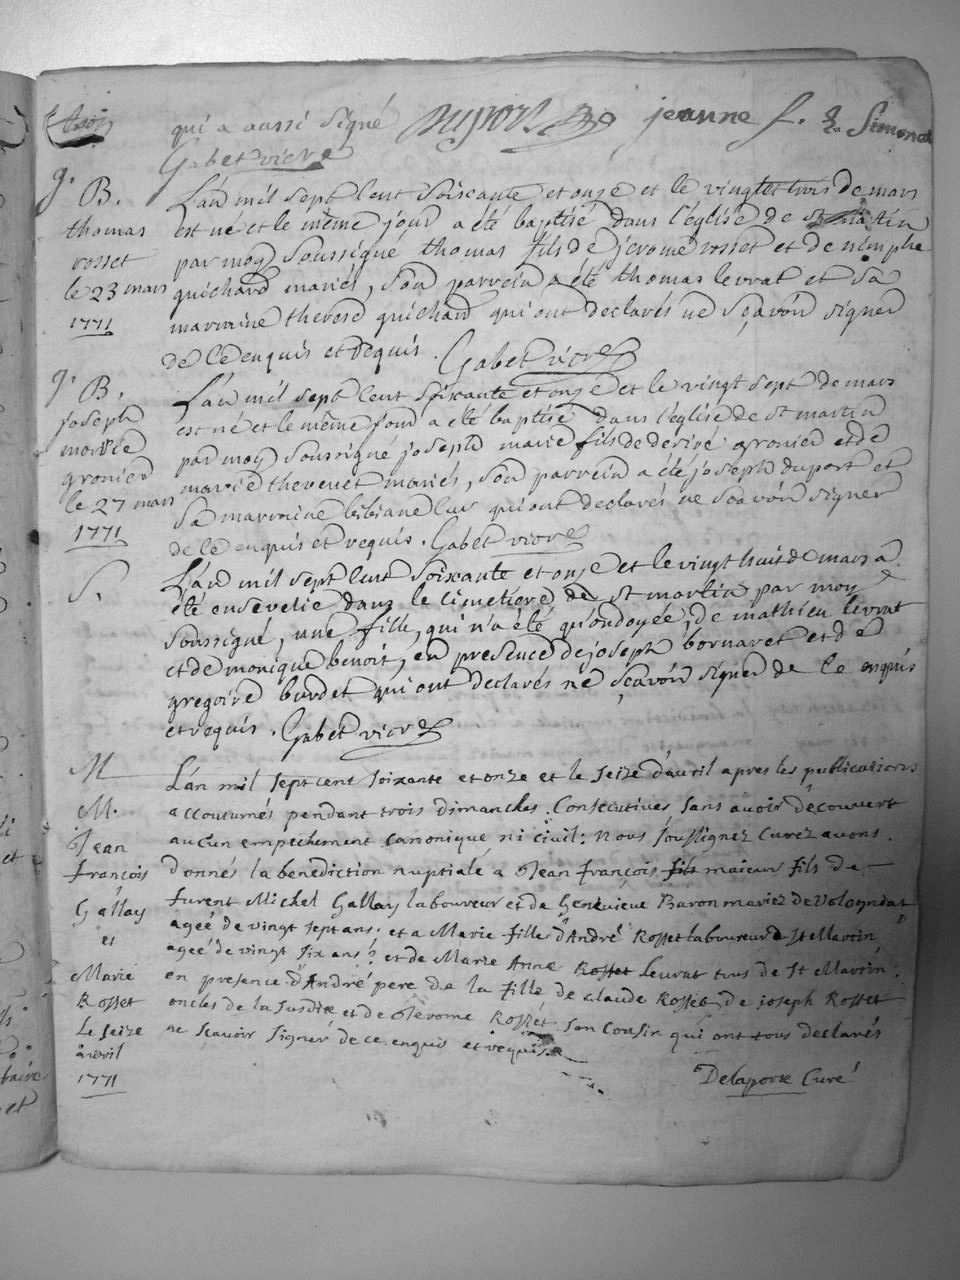 trois
qui a aussi signé Duport jeanne f. Simonet
Gabet vicre
g. B.
thomas
rosset
le 23 mars
1771
L'an mil sept cent soixante et onze et le vingt trois de mars
est né et le même jour a été baptisé dans l'église de st martin
par moy soussigné thomas fils de jerome rosset et de nimphe
guichard mariés, son parrein a été thomas levrat et sa
marraine therese guichard qui ont declarés ne sçavoir signer
de ce enquis et requis. Gabet vicre
g. B.
joseph
marie
gronier
le 27 mars
1771
L'an mil sept cent soixante et onze et le vingt sept de mars
est né et le même jour a été baptisé dans l'église de st martin
par moy soussigné joseph marie fils de deriré gronier et de
marie thevenet mariés, son parrein a été joseph duport et
sa marraine bibiane luc qui ont declarés ne sçavoir signer
de ce enquis et requis. Gabet vicre
S.
L'an mil sept cent soixante et onze et le vingt huit de mars a
été ensevelie dans le cimetiere de st martin par moy
soussigné, une fille, qui n'a été qu'ondoyée, de mathieu levrat
et de monique benoit, en presence de joseph bornaret et de
gregoire burdet qui ont declarés ne sçavoir signer de ce enquis
et requis. Gabet vicre
M
M.
Jean
françois
Gallay
et
Marie
Rosset
Le seize
avril
1771
L'an mil sept cent soixante et onze et le seize d'avril apres les publications
accoutumés pendant trois dimanches consecutives sans avoir découvert
aucun empechement canonique ni civil: nous soussignez Curez avons
donnés la benediction nuptiale a Jean françois fils maieur fils de
furent Michel Gallay laboureur et de Genevieve Baron mariez de Vologndat
ageé de vingt sept ans. et a Marie fille d'André Rosset laboureur de St Martin
ageé de vingt six ans? et de Marie Anne Rosset Leurat tous de St Martin.
en presence d'André pere de la fille de claude Rosset de joseph Rosset
oncles de la susdite et de Jerome Rosset son cousin qui ont tous declarés
ne scavoir signer de ce enquis et requis.
Delaporte Curé